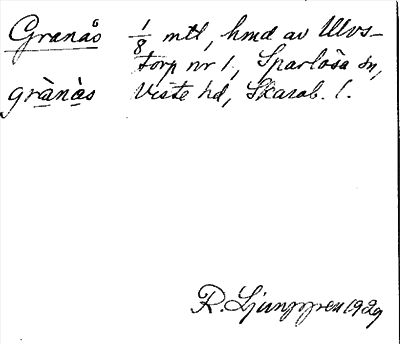 Granås 1/8 mtl, hmd av Ulvs-
torp nr 1, Sparlösa sn,
grànàs Viste hd, Skarab. l.
R. Ljunggren 1929